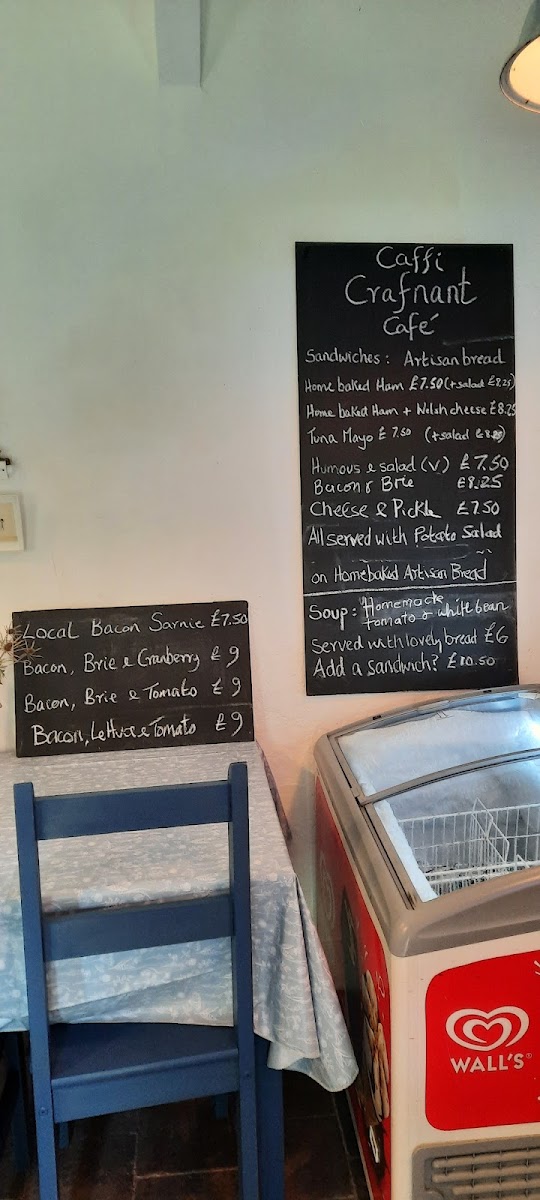 Caffi
Crafnant
Café
Sandwiches: Artisan bread
Home baked Ham £7.50 (+ salad £8.25)
Home baked Ham + Welsh cheese £8.25
Tuna Mayo £7.50 (+ salad £8.25)
Humous & salad (v) £7.50
Bacon & Brie £8.25
Cheese & Pickle £7.50
All served with Potato Salad
on Homebaked Artisan Bread
Soup: Homemade
tomato & white bean
Served with lovely bread £6
Add a sandwich? £10.50
Local Bacon Sarnie £7.50
Bacon, Brie & Cranberry £9
Bacon, Brie & Tomato £9
Bacon, Lettuce & Tomato £9
WALL'S®